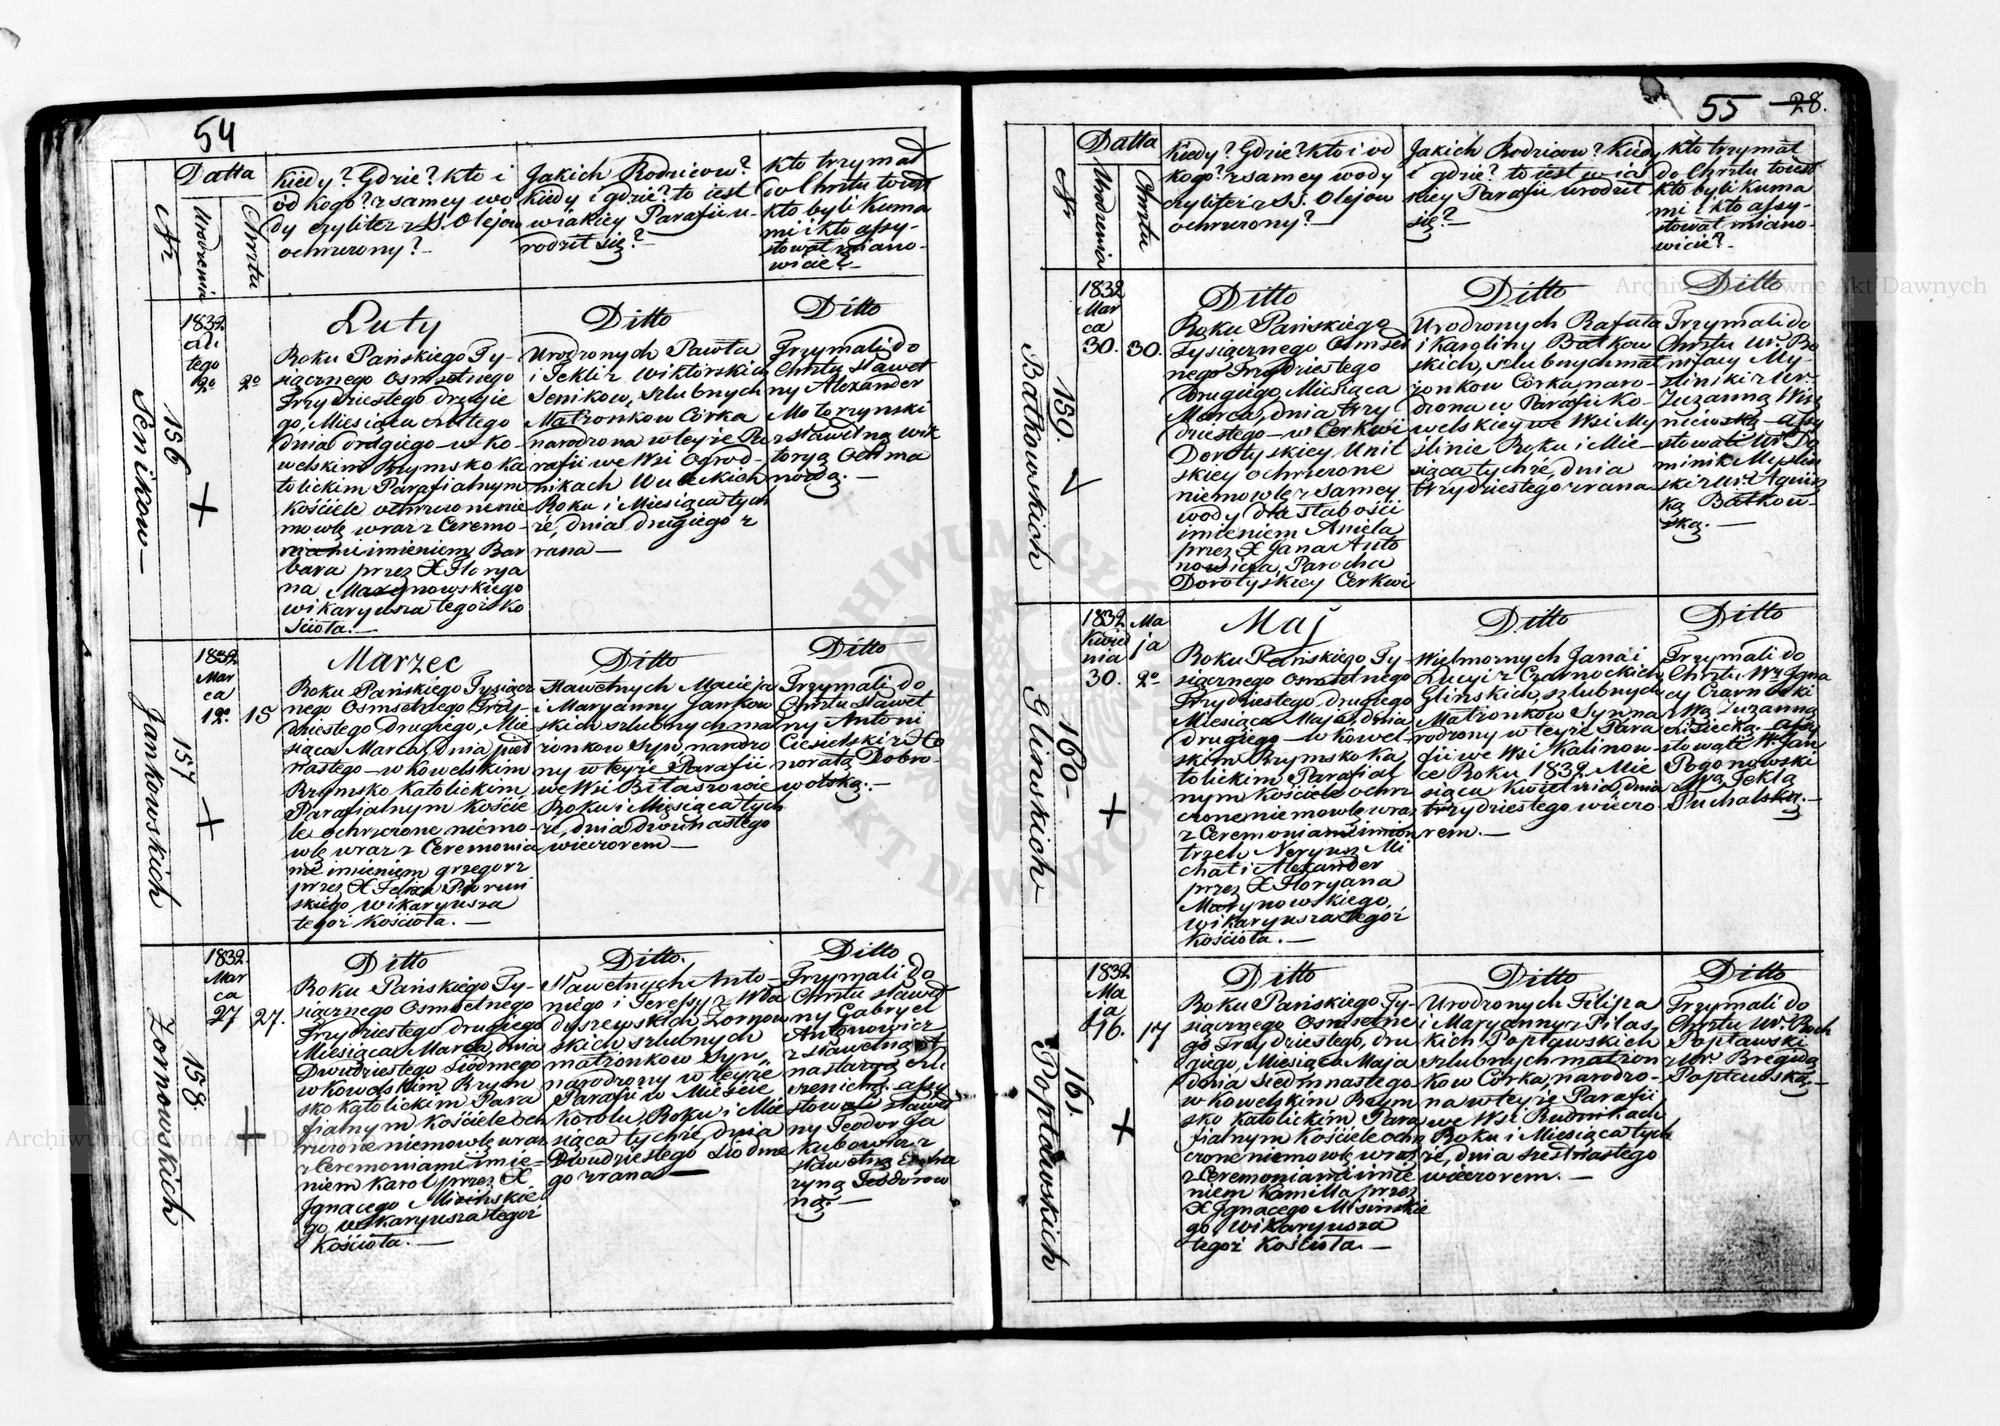 54
Datta
Nr
Urodzenia
Chrztu
Kiedy? Gdzie? Kto i
od kogo? z samey wo
dy czyli też z S. Olejow
ochrzczony?
Jakich Rodzicow?
Kiedy i gdzie? to iest
w iakiey Parafii u-
rodził się?
Kto trzymał
do Chrztu toiest
kto byli Kuma
mi i kto assy-
stował miano-
wicie?
156
Senikow
1832
Lu
tego
2º
2º
Luty
Roku Pańskiego Ty-
siącznego Osmsetnego
Trzydziestego drugie
go, Miesiąca Lutego
dnia drugiego w Ko-
welskim Rzymsko Ka
tolickim Parafialnym
Kościele ochrzczone nie
mowlę wraz z Ceremo-
niami imieniem Bar
bara przez X Florya
na Marynowskiego
wikaryusza tegoż Ko
ścioła.
Ditto
Urodzonych Pawła
i Tekli z Wiktorskich
Senikow, szlubnych
Małżonkow Córka
narodzona w teyże Pa
rafii we Wsi Ogrod-
nikach Wuickich
Roku i Miesiąca tych
że, dnia drugiego z
rana
Ditto
Trzymali do
Chrztu sławet
ny Alexander
Motorzynski
z sławetną Wik
toryą Ochma
nową.
157
Jankowskich
1832
Mar
ca
12º
15
Marzec
Roku Pańskiego Tysiącz
nego Osmsetnego Trzy-
dziestego drugiego, Mie
siąca Marca, dnia piet
nastego w Kowelskim
Rzymsko Katolickim
Parafialnym Koście
le ochrzczone niemo-
wlę wraz z Ceremonia
mi imieniem Grzegorz
przez X Felixa Piorun
skiego wikaryusza
tegoż Kościoła.
Ditto
Sławetnych Macieja
i Maryanny Jankow
skich szlubnych ma
żonkow Syn, narodzo
ny w teyże Parafii
we Wsi Bitaszowie
Roku i Miesiąca tych
że, dnia dwunastego
wieczorem
Ditto
Trzymali do
Chrztu sławet
ny Antoni
Ciesielski z Ho
noratą Dobro-
wolską.
158
Zornowskich
1832
Mar
ca
27
27.
Ditto
Roku Pańskiego Ty-
siącznego Osmsetnego
Trzydziestego drugiego
Miesiąca Marca, dnia
Dwudziestego Siodmego
w Kowelskim Rzym
sko katolickim Para
fialnym Kościele och
rzczone niemowlę wraz
z Ceremoniami imie-
niem Karol przez X
Ignacego Misinskie
go wikaryusza tegoż
Kościoła.
Ditto.
Sławetnych Anto-
niego i Teressy z Wła
dyszewskich Zornow
skich szlubnych
małżonkow Syn,
narodzony w teyże
Parafii w Mieście
Kowlu, Roku i Mie
siąca tychże, dnia
Dwudziestego Siodme
go z rana
Ditto
Trzymali do
Chrztu sławet
ny Gabryel
Antonowicz
z sławetną
assy
stowali sławet
ny Teodor Ja
kubowicz z
sławetną Katha
rzyną Teodorow
ną.
55 28.
Datta
Nr
Urodzenia
Chrztu
Kiedy? Gdzie? Kto i od
kogo? z samey wody
czyliteż z SS. Olejow
ochrzczony?
Jakich Rodzicow? Kiedy
i gdzie? to iest w ia
kiey Parafii urodził
się?
Kto trzymał
do Chrztu toiest
kto byli kuma
mi i kto assy-
stował miano-
wicie?
159.
Batkowskich
1832
Mar
ca
30.
30.
Ditto
Roku Pańskiego
Tysiącznego Osmset
nego Trzydziestego
Drugiego, Miesiąca
Marca, dnia trzy
dziestego w Cerkwi
Dorotyskiey Unit
skiey ochrzczone
niemowlę z samey
wody dla słabości
imieniem Aniela
przez X Jana Anto
nowicza, Parocha
Dorotyskiey Cerkwi
Ditto
Urodzonych Rafała
i Karoliny Batkow
skich, szlubnych mał
żonkow Córka, naro-
dzona w Parafii Ko-
welskiey we Wsi My
ślinie Roku i Mie-
siąca tychże, dnia
trzydziestego z rana
Ditto
Trzymali do
Chrztu Ur. Bo
nifacy My-
ślinski z Ur.
Zuzanną Wisz
niewską assy
stowali Ur. Do
minik Myślin
ski z Ur. Agnisz
ką Batkow-
ską.
160
Glinskich
1832
Kwiet
nia
30.
Ma
ja
2º
Maj
Roku Pańskiego Ty-
siącznego Osmsetnego
Trzydziestego drugiego
Miesiąca Maja, dnia
drugiego w Kowel-
skim Rzymsko Ka
tolickim Parafial
nym Kościele ochrz
czone niemowlę wraz
z Ceremoniami imion
trzech Neryusz Mi
chał i Alexander
przez X Floryana
Marynowskiego,
wikaryusza tegoż
Kościoła.
Ditto
Wielmożnych Jana i
Lucyi z Czarnockich
Glinskich, szlubnych
Małżonkow Syn na
rodzony w teyże Para
fii we Wsi Kalinow-
ce Roku 1832 Mie
siąca Kwietnia, dnia
trzydziestego wieczo
rem.
Ditto
Trzymali do
Chrztu Wy Igna
cy Czarnocki
z Wą Zuzanną
Lisiecką assy
stowali W. Jan
Pogonowski
z Wą Teklą
Puchalską.
161.
Popławskich
1832
Ma
ja
16.
17
Ditto
Roku Pańskiego Ty-
siącznego Osmsetne
go Trzydziestego, dru
giego, Miesiąca Maja
dnia Siedmnastego
w Kowelskim Rzym
sko Katolickim Para
fialnym Kościele ochrz
czone niemowlę wraz
z Ceremoniami imie
niem Kamilla, przez
X Ignacego Misinskie
go, wikaryusza
tegoż Kościoła.
Ditto
Urodzonych Filipa
i Maryanny z Pilas,
kich Popławskich
szlubnych małżon
kow Córka, narodzo-
na w teyże Parafii
we Wsi Rudnikach
Roku i Miesiąca tych
że, dnia szestnastego
wieczorem.
Ditto
Trzymali do
Chrztu Ur. Roch
Popławski
z Ur. Brygidą
Popławską.
Archiwum Główne Akt Dawnych
Archiwum Główne Akt Dawnych
ARCHIWUM GŁÓWNE AKT DAWNYCH